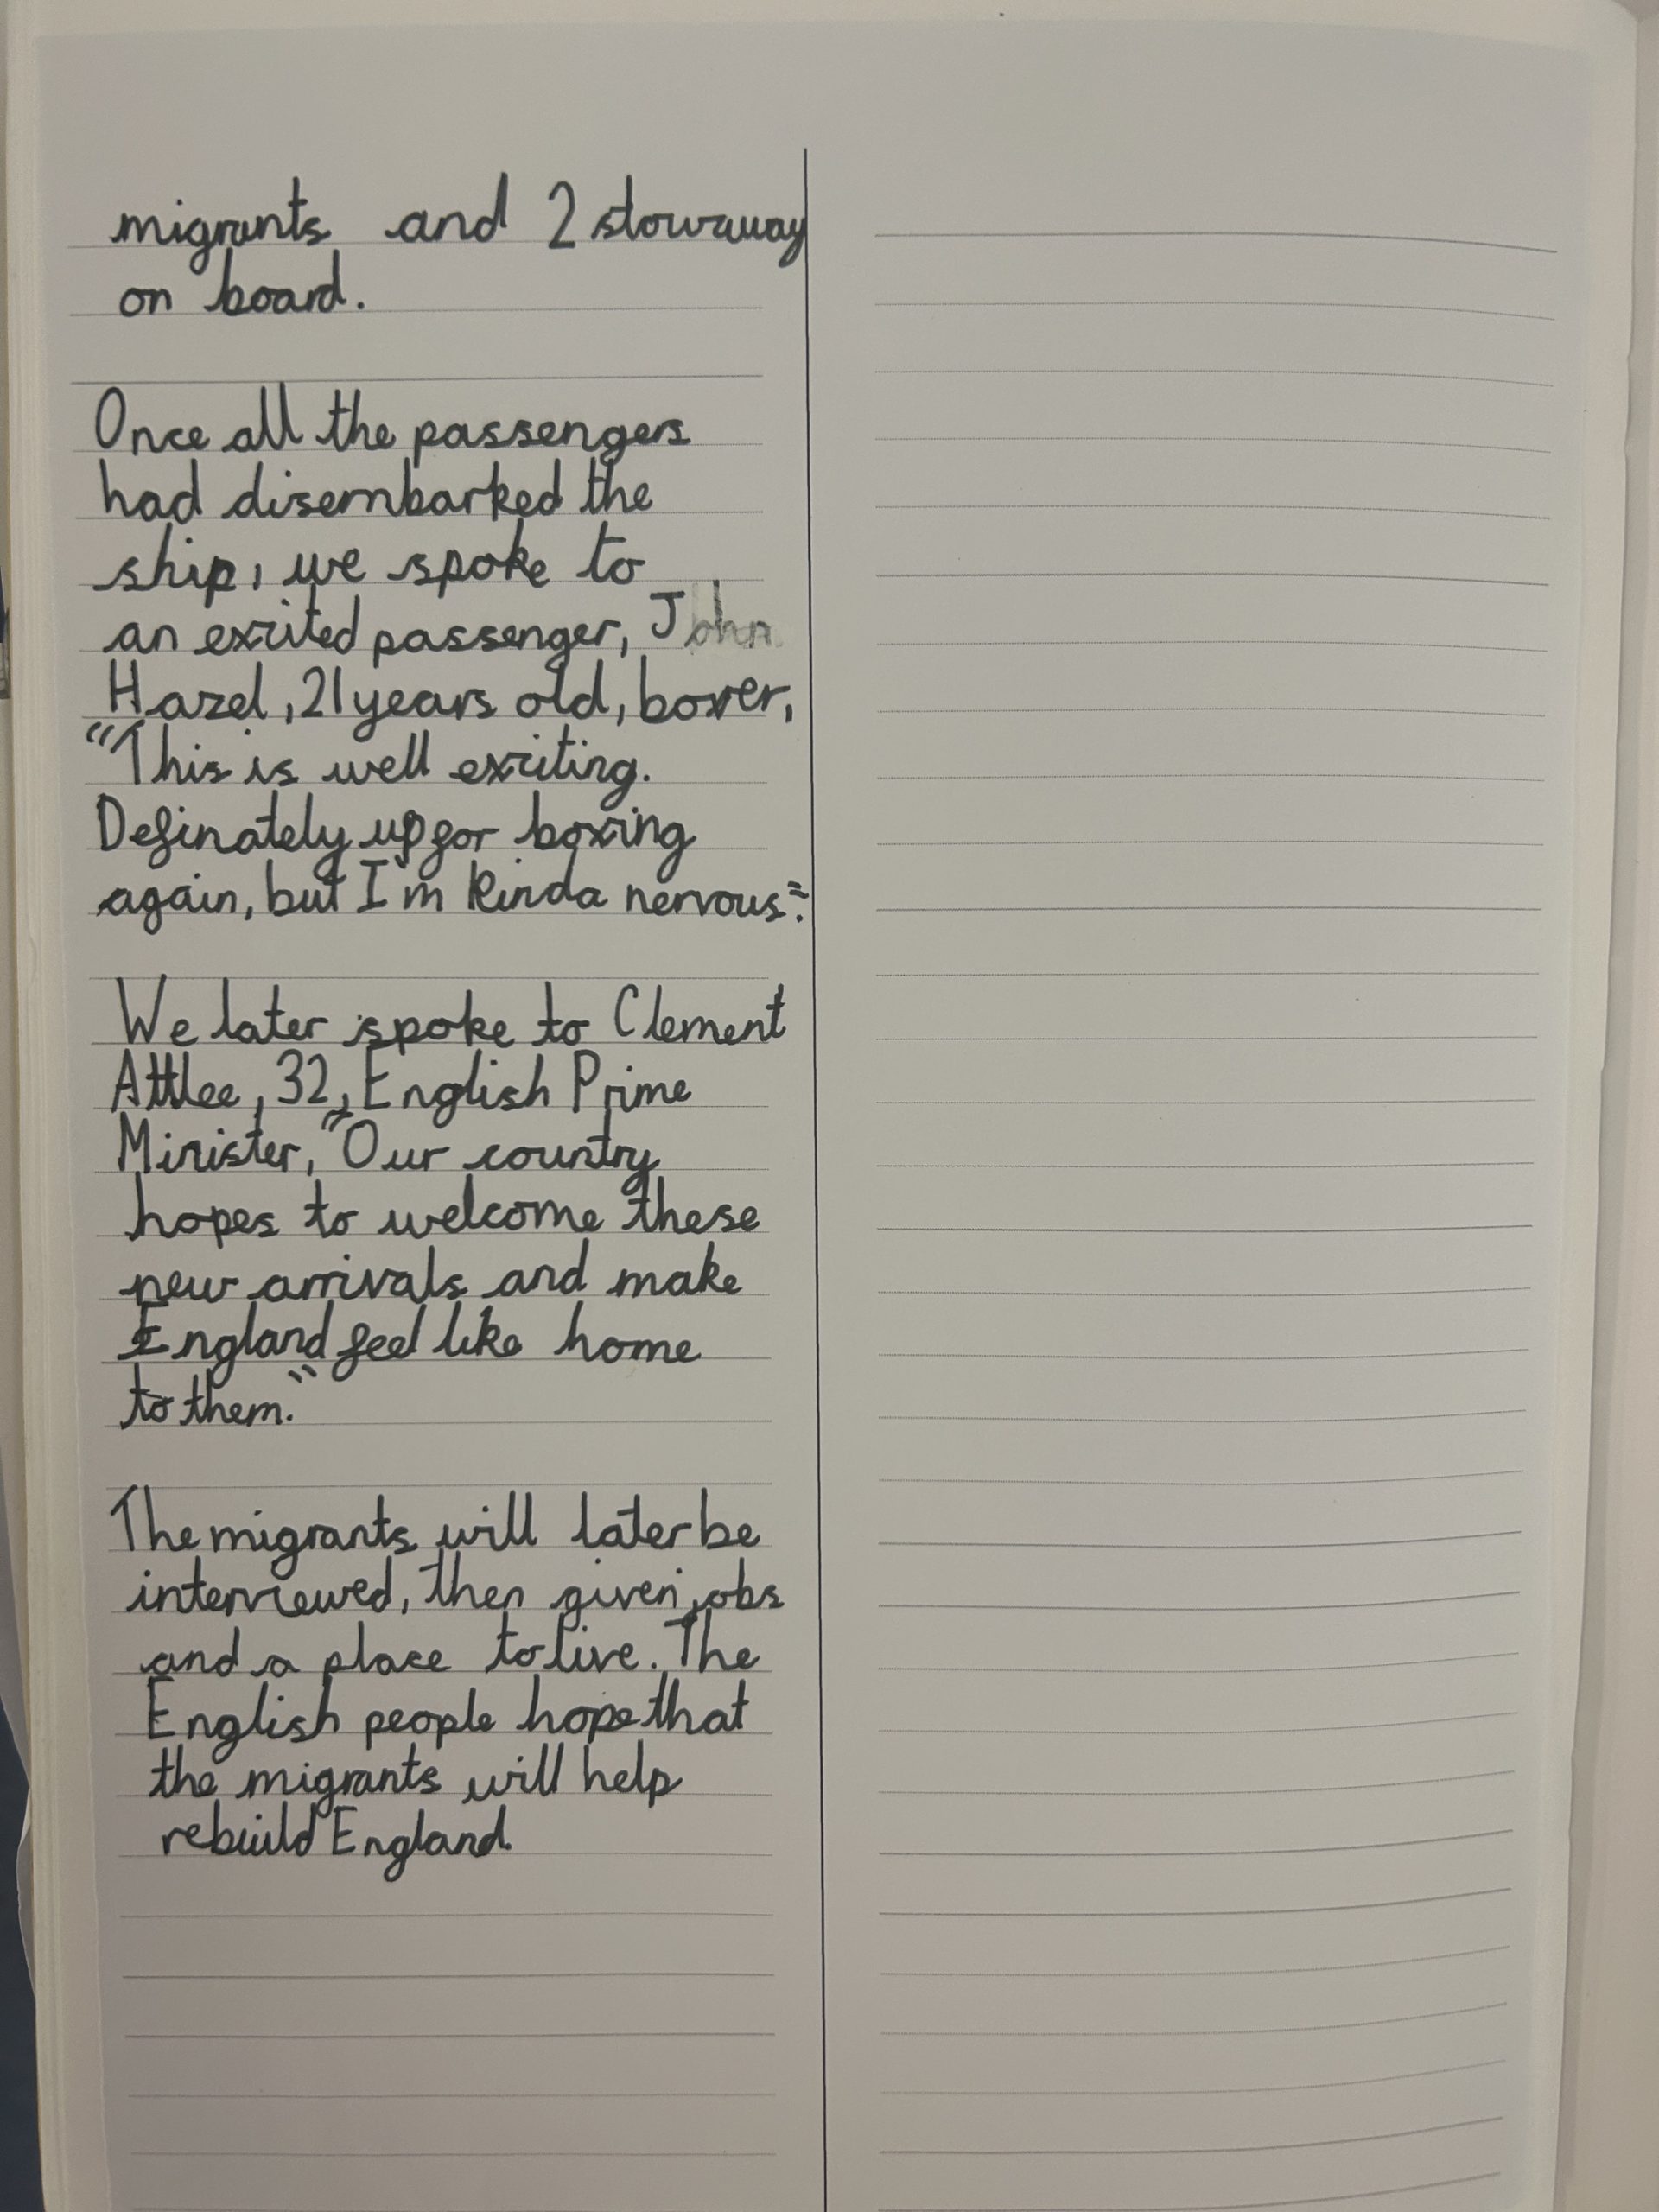 migrants and 2 stowaway
on board.
Once all the passengers
had disembarked the
ship, we spoke to
an excited passenger, John
Hazel, 21 years old, boxer,
"This is well exciting.
Definately up for boxing
again, but I'm kinda nervous."
We later spoke to Clement
Attlee, 32, English Prime
Minister, "Our country
hopes to welcome these
new arrivals and make
England feel like home
to them."
The migrants will later be
interviewed, then given jobs
and a place to live. The
English people hope that
the migrants will help
rebuild England.